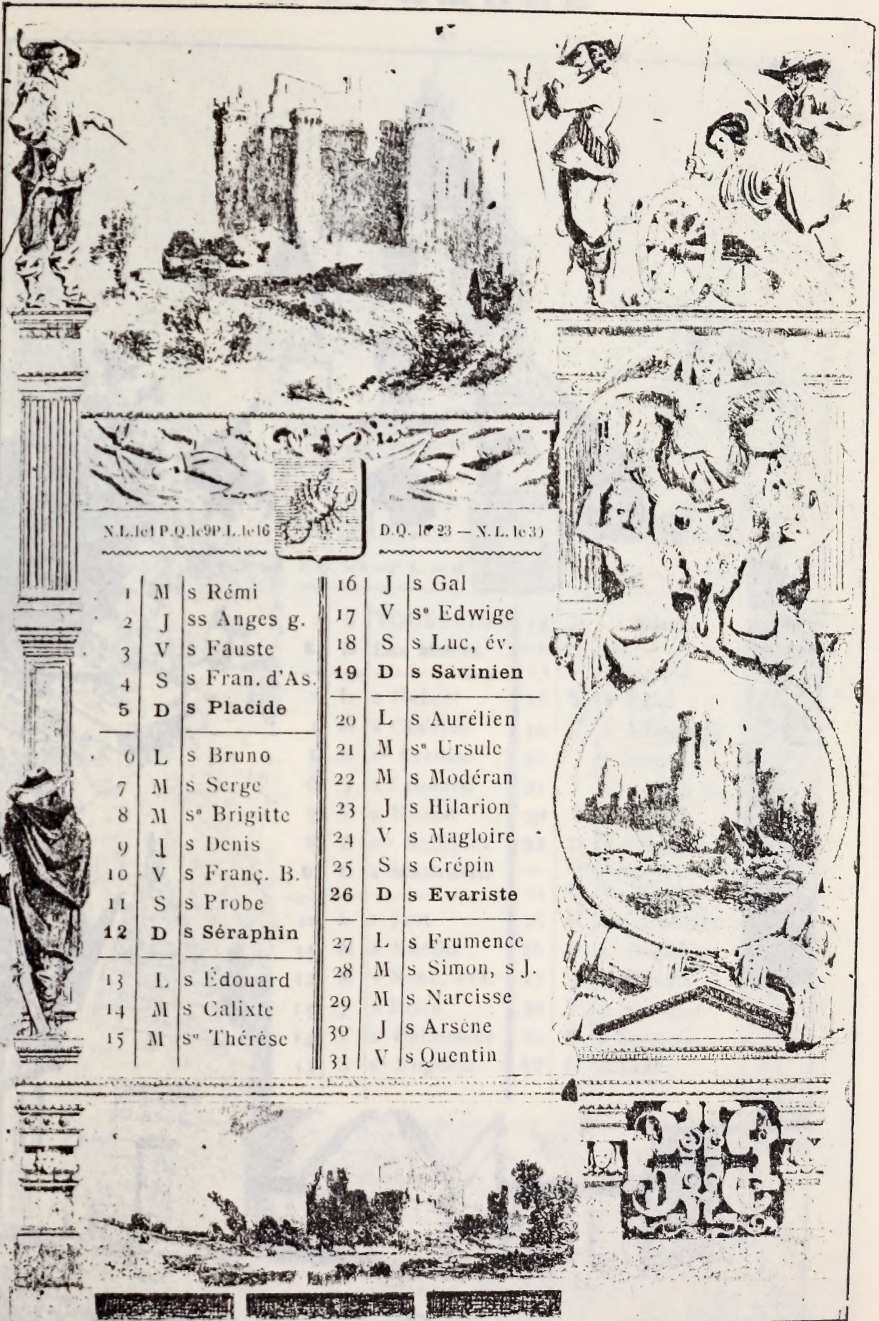 N.L.le1 P.Q.le9 P.L.le16
D.Q. le 23 — N.L. le 30
1 M s Rémi
2 J ss Anges g.
3 V s Fauste
4 S s Fran. d'As.
5 D s Placide
6 L s Bruno
7 M s Serge
8 M sᵉ Brigitte
9 J s Denis
10 V s Franç. B.
11 S s Probe
12 D s Séraphin
13 L s Édouard
14 M s Calixte
15 M sᵉ Thérèse
16 J s Gal
17 V sᵉ Edwige
18 S s Luc, év.
19 D s Savinien
20 L s Aurélien
21 M sᵉ Ursule
22 M s Modéran
23 J s Hilarion
24 V s Magloire
25 S s Crépin
26 D s Evariste
27 L s Frumence
28 M s Simon, s J.
29 M s Narcisse
30 J s Arsène
31 V s Quentin